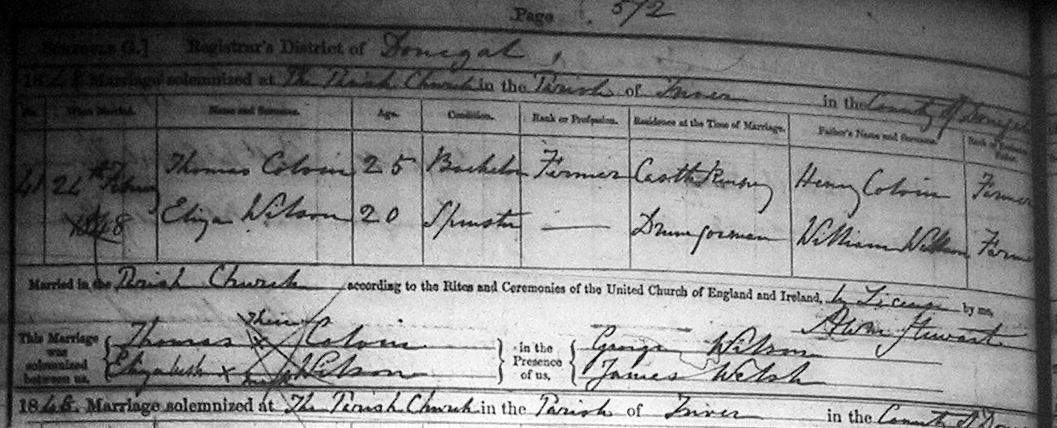 Page 572
SCHEDULE G.] Registrar's District of Donegal
1848 Marriage solemnized at The Parish Church in the Parish of Inver in the County of Donegal
No. When Married. Name and Surname. Age. Condition. Rank or Profession. Residence at the Time of Marriage. Father's Name and Surname. Rank or Profession of Father.
41 Thomas Colvin 25 Bachelor Farmer Henry Colvin Farmer
1848 Eliza Wilson 20 Spinster — Drumgorman William Wilson Farmer
Married in the Parish Church according to the Rites and Ceremonies of the United Church of England and Ireland, by License by me,
Stewart
This Marriage was solemnized between us, Thomas x Colvin in the Presence of us, George Wilson
Elizabeth x Wilson James Welsh
1848. Marriage solemnized at The Parish Church in the Parish of Inver in the County of